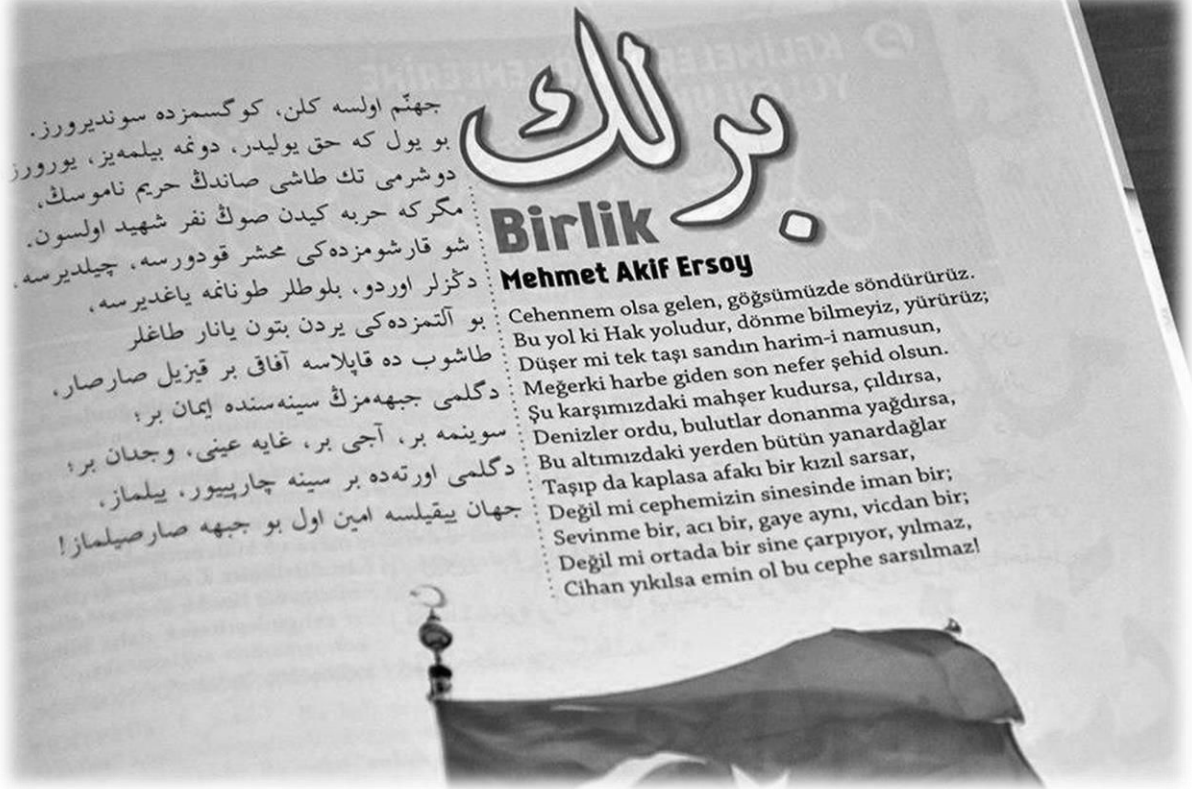 برلك
Birlik
Mehmet Akif Ersoy
جهنّم اولسه كلن، كوگسمزده سوندیرورز.
بو یول كه حق یولیدر، دونمه بیلمه‌یز، یورورز
دوشرمی تك طاشی صاندڭ حریم ناموسڭ،
مگركه حربه كیدن صوڭ نفر شهید اولسون.
شو قارشومزده‌كی محشر قودورسه، چیلدیرسه،
دڭزلر اوردو، بلوطلر طونانمه یاغدیرسه،
بو آلتمزده‌كی یردن بتون یانار طاغلر
طاشوب ده قاپلاسه آفاقی بر قیزیل صارصار،
دگلمی جبهه‌مزڭ سینه‌سنده ایمان بر؛
سوینمه بر، آجی بر، غایه عینی، وجدان بر؛
دگلمی اورته‌ده بر سینه چارپییور، ییلماز،
جهان ییقیلسه امین اول بو جبهه صارصیلماز!
Cehennem olsa gelen, göğsümüzde söndürürüz.
Bu yol ki Hak yoludur, dönme bilmeyiz, yürürüz;
Düşer mi tek taşı sandın harim-i namusun,
Meğerki harbe giden son nefer şehid olsun.
Şu karşımızdaki mahşer kudursa, çıldırsa,
Denizler ordu, bulutlar donanma yağdırsa,
Bu altımızdaki yerden bütün yanardağlar
Taşıp da kaplasa afakı bir kızıl sarsar,
Değil mi cephemizin sinesinde iman bir;
Sevinme bir, acı bir, gaye aynı, vicdan bir;
Değil mi ortada bir sine çarpıyor, yılmaz,
Cihan yıkılsa emin ol bu cephe sarsılmaz!